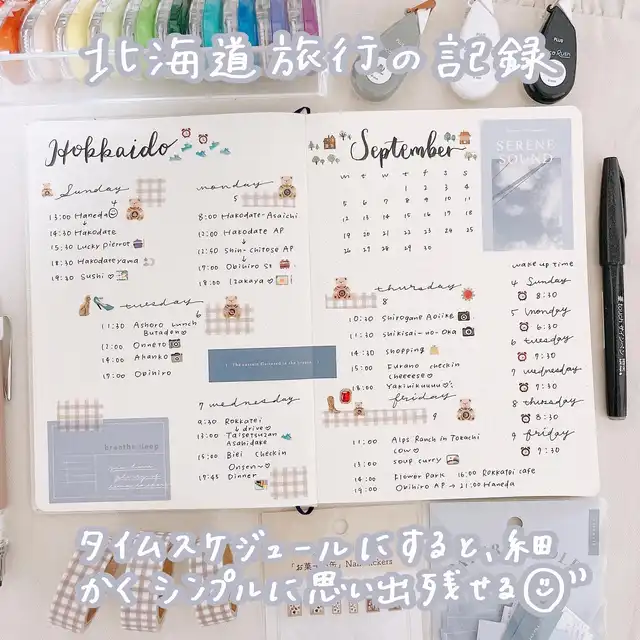 北海道旅行の記録
PLUS
Hokkaido
Sunday
4
13:00 Haneda
14:30 Hakodate
15:30 Lucky pierrot
18:30 Hakodateyama
19:30 Sushi
monday
5
8:00 Hakodate-Asaichi
12:00 Hakodate AP
12:50 Shin-Chitose AP
17:00 Obihiro St
18:00 Izakaya
tuesday
6
11:30 Ashoro Lunch
Butadon
13:00 Onneto
14:00 Akanko
17:00 Obihiro
7 wednesday
9:30 Rokkatei
↓ drive
13:00 Taisetsuzan
Asahidake
15:00 Biei Checkin
Onsen~
17:45 Dinner
September
M T W T F S S
1 2 3 4
5 6 7 8 9 10 11
12 13 14 15 16 17 18
19 20 21 22 23 24 25
26 27 28 29 30
SERENE
SOUND
thursday
8
10:30 Shirogane Aoiike
11:30 Shikisai-no-Oka
14:30 Shopping
15:00 Furano checkin
cheeeese
18:00 Yakinikuuuu
friday
9
11:00 Alps Ranch in Tokachi
cow
13:00 Soup curry
14:00 Flower Park 16:00 Rokkatei cafe
19:00 Obihiro AP → 21:00 Haneda
wake up time
4 Sunday
8:30
5 monday
6:30
6 tuesday
9:30
7 wednesday
7:30
8 thursday
8:30
9 friday
7:30
breathe deep
タイムスケジュールにすると、細
かくシンプルに思い出残せる